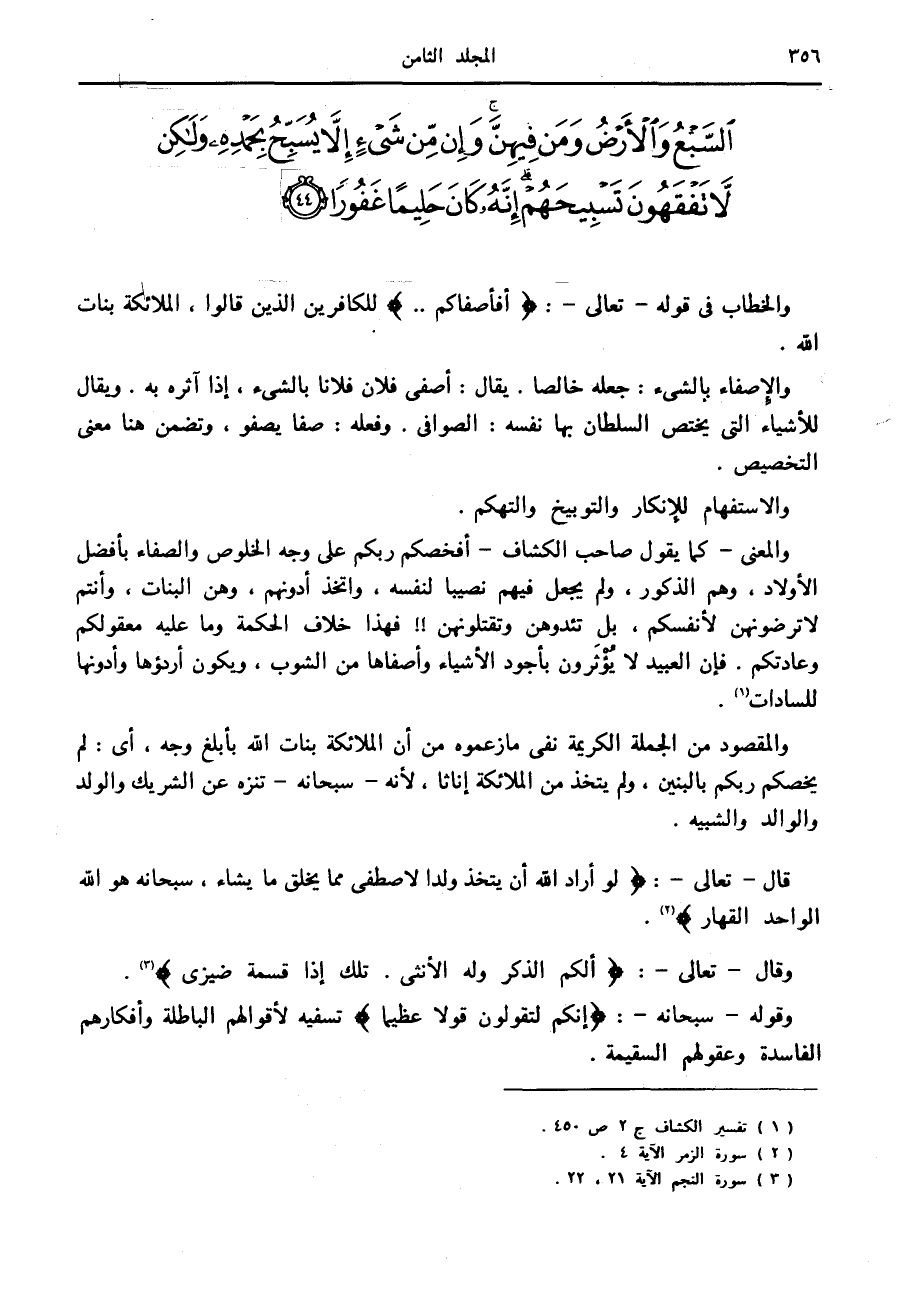 ٣٥٦
المجلد الثامن
ٱلسَّبْعُ وَٱلْأَرْضُ وَمَن فِيهِنَّ ۚ وَإِن مِّن شَىْءٍ إِلَّا يُسَبِّحُ بِحَمْدِهِۦ وَلَٰكِن
لَّا تَفْقَهُونَ تَسْبِيحَهُمْ ۗ إِنَّهُۥ كَانَ حَلِيمًا غَفُورًا ٤٤
والخطاب فى قوله - تعالى - : ﴿ أفأصفاكم .. ﴾ للكافرين الذين قالوا ، الملائكة بنات
الله .
والإصفاء بالشىء : جعله خالصا . يقال : أصفى فلان فلانا بالشىء ، إذا آثره به . ويقال
للأشياء التى يختص السلطان بها نفسه : الصوافى . وفعله : صفا يصفو ، وتضمن هنا معنى
التخصيص .
والاستفهام للإنكار والتوبيخ والتهكم .
والمعنى - كما يقول صاحب الكشاف - أفخصكم ربكم على وجه الخلوص والصفاء بأفضل
الأولاد ، وهم الذكور ، ولم يجعل فيهم نصيبا لنفسه ، واتخذ أدونهم ، وهن البنات ، وأنتم
لاترضونهن لأنفسكم ، بل تئدوهن وتقتلونهن !! فهذا خلاف الحكمة وما عليه معقولكم
وعادتكم . فإن العبيد لا يُؤْثَرون بأجود الأشياء وأصفاها من الشوب ، ويكون أردؤها وأدونها
للسادات(١) .
والمقصود من الجملة الكريمة نفى مازعموه من أن الملائكة بنات الله بأبلغ وجه ، أى : لم
يخصكم ربكم بالبنين ، ولم يتخذ من الملائكة إناثا ، لأنه - سبحانه - تنزه عن الشريك والولد
والوالد والشبيه .
قال - تعالى - : ﴿ لو أراد الله أن يتخذ ولدا لاصطفى مما يخلق ما يشاء ، سبحانه هو الله
الواحد القهار ﴾(٢) .
وقال - تعالى - : ﴿ ألكم الذكر وله الأنثى . تلك إذا قسمة ضيزى ﴾(٣) .
وقوله - سبحانه - : ﴿إنكم لتقولون قولا عظيما ﴾ تسفيه لأقوالهم الباطلة وأفكارهم
الفاسدة وعقولهم السقيمة .
( ١ ) تفسير الكشاف ج ٢ ص ٤٥٠ .
( ٢ ) سورة الزمر الآية ٤ .
( ٣ ) سورة النجم الآية ٢١ ، ٢٢ .